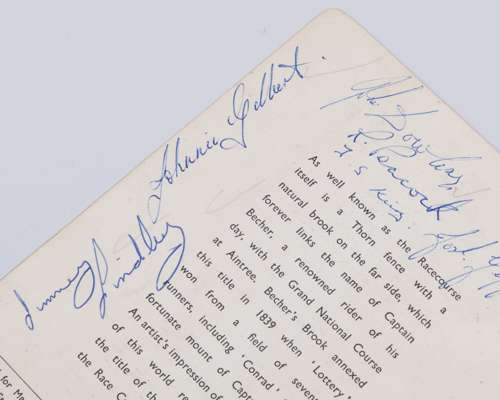 Johnnie Gilbert.
Jimmy Lindley
R. Peacock
As well known as the Racecourse
itself is a Thorn fence with a
natural brook on the far side, which
forever links the name of Captain
Becher, a renowned rider of his
day, with the Grand National Course
at Aintree. Becher's Brook annexed
this title in 1839 when 'Lottery'
won from a field of seven
runners, including 'Conrad'
fortunate mount of Capt
An artist's impression of
of this world re
the title of th
the Race C
for Me